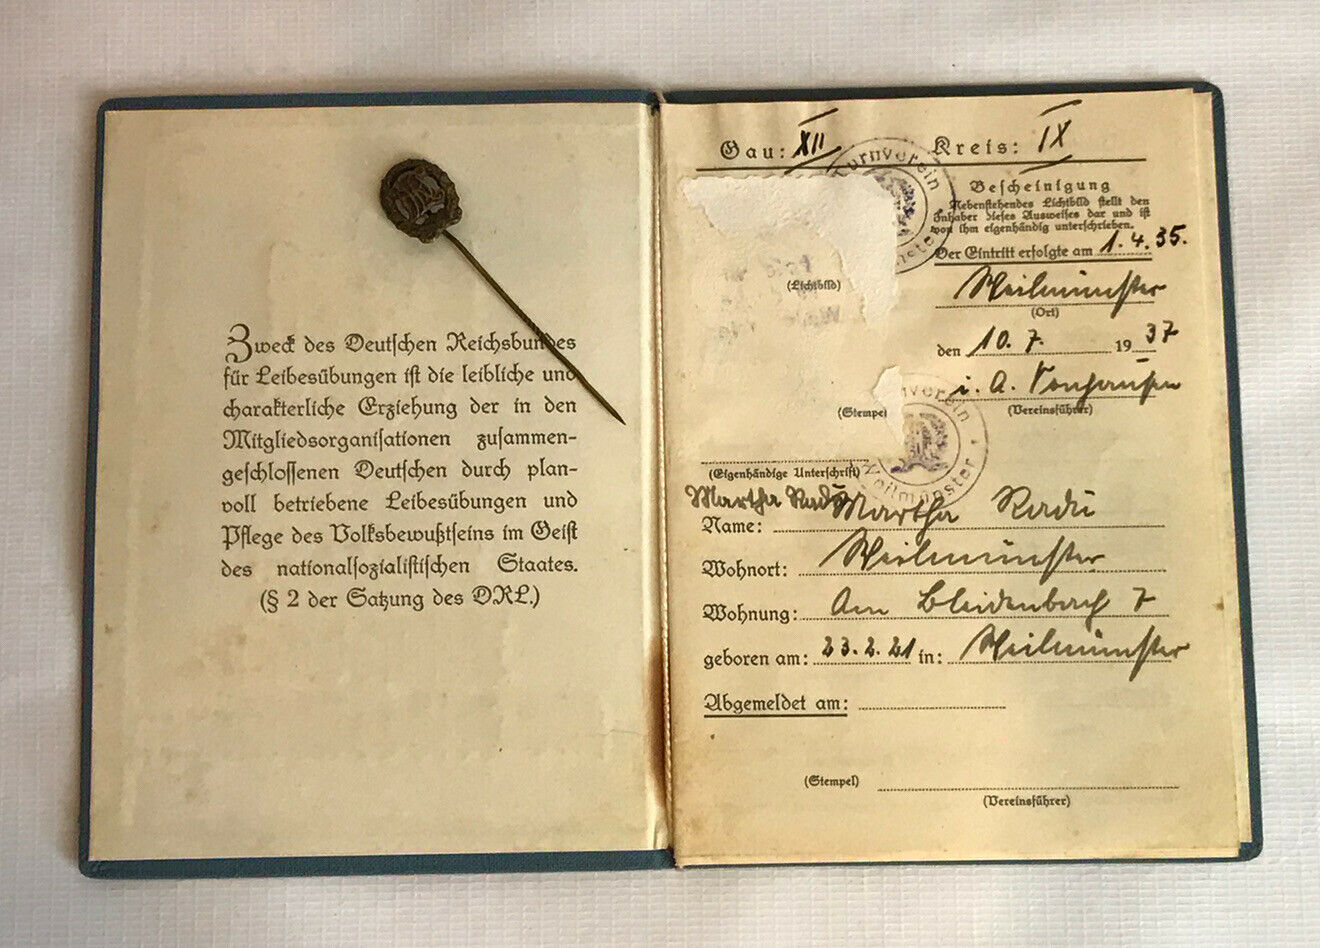 Zweck des Deutschen Reichsbundes
für Leibesübungen ist die leibliche und
charakterliche Erziehung der in den
Mitgliedsorganisationen zusammen-
geschlossenen Deutschen durch plan-
voll betriebene Leibesübungen und
Pflege des Volksbewußtseins im Geist
des nationalsozialistischen Staates.
(§ 2 der Satzung des DRL.)
Gau: XII Kreis: IX
Turnverein
Bescheinigung
Nebenstehendes Lichtbild stellt den
Inhaber dieses Ausweises dar und ist
von ihm eigenhändig unterschrieben.
Der Eintritt erfolgte am 1.4.35.
(Lichtbild)
Weilmünster
(Ort)
den 10.7. 1937
i. A.
(Stempel) (Vereinsführer)
Weilmünster
(Eigenhändige Unterschrift)
Martha Radu
Name: Martha Radu
Wohnort: Weilmünster
Wohnung: Am Bleidenbach 7
geboren am: 23.2.21 in: Weilmünster
Abgemeldet am:
(Stempel)
(Vereinsführer)